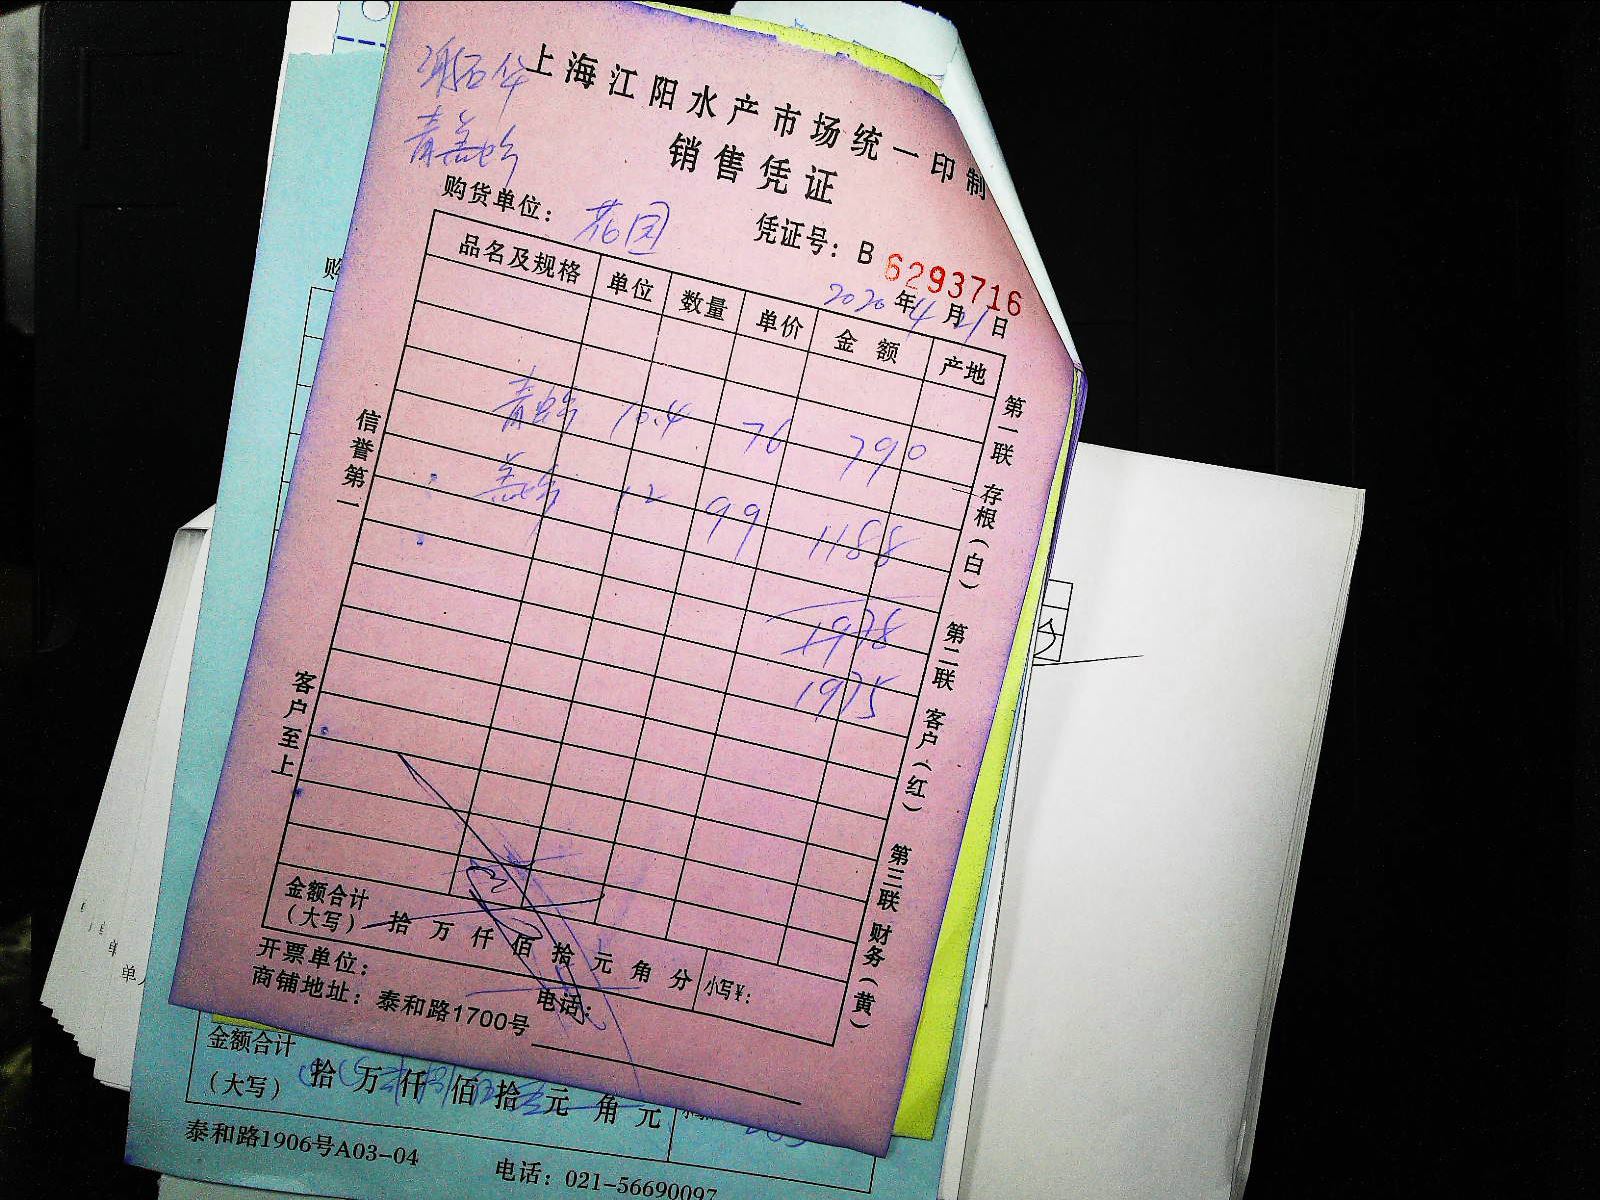 上海江阳水产市场统一印制
销售凭证
购货单位： 花园
凭证号：B 6293716
2020年4月21日
品名及规格 单位 数量 单价 金额 产地
10.4 76 790
12 99 1188
1978
1975
信誉第一
客户至上
第一联 存根（白） 第二联 客户（红） 第三联 财务（黄）
金额合计
（大写） 拾 万 仟 佰 拾 元 角 分 小写¥：
开票单位： 电话：
商铺地址：泰和路1700号
购
金额合计
（大写） 拾 万 仟 佰 拾 元 角 元
泰和路1906号A03-04
电话：021-56690097